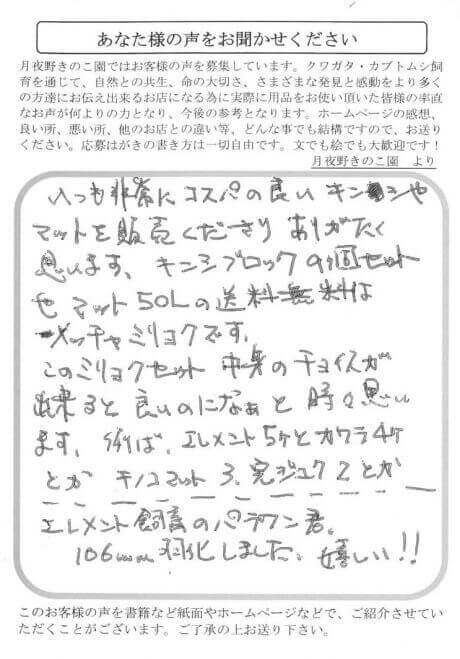 あなた様の声をお聞かせください
月夜野きのこ園ではお客様の声を募集しています。クワガタ・カブトムシ飼
育を通じて、自然との共生、命の大切さ、さまざまな発見と感動をより多く
の方達にお伝え出来るお店になる為に実際に用品をお使い頂いた皆様の率直
なお声が何よりの力となり、今後の参考となります。ホームページの感想、
良い所、悪い所、他のお店との違い等、どんな事でも結構ですので、お送り
ください。応募はがきの書き方は一切自由です。文でも絵でも大歓迎です！
月夜野きのこ園　より
いつも非常にコスパの良いキンシや
マットを販売くださりありがたく
思います、キンシブロック9個セット
やマット50Lの送料無料は
メッチャミリョクです。
このミリョクセット中身のチョイスが
出来ると良いのになぁと時々思い
ます、例ば、エレメント5ケとカワラ4ケ
とか キノコマット3、完ジュク2とか
エレメント飼育のパラワン君。
106mm羽化しました、嬉しい!!
このお客様の声を書籍など紙面やホームページなどで、ご紹介させてい
ただくことがございます。ご了承の上お送り下さい。